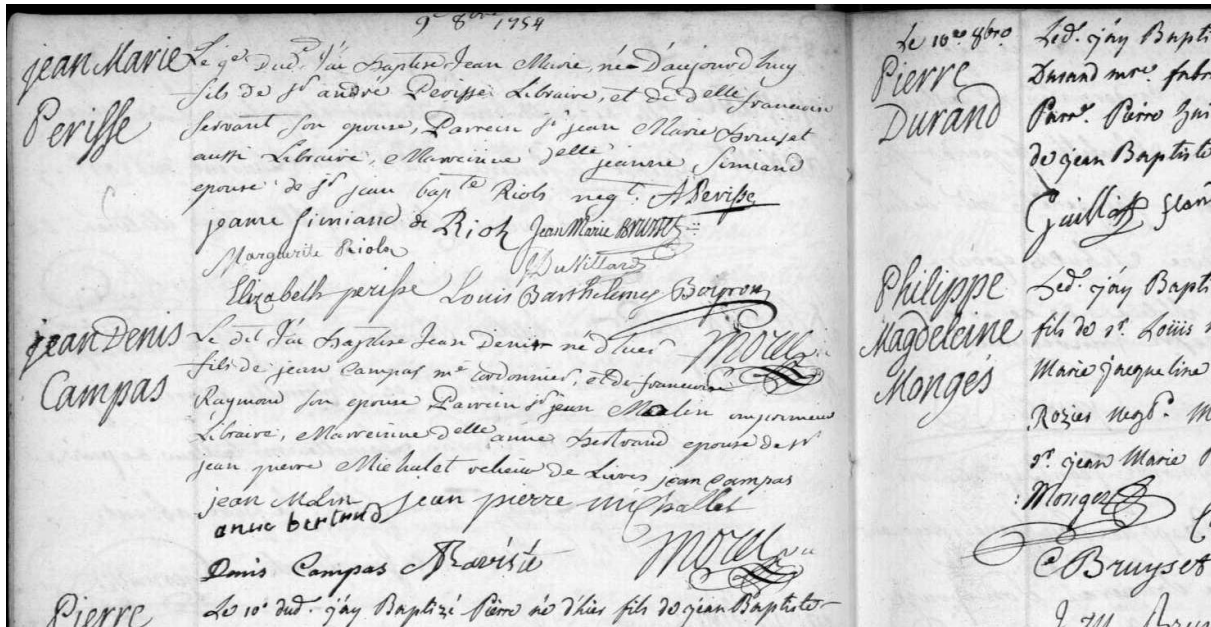 9e 8bre 1754
jean Marie
Perisse
Le 9e dud. J'ai Baptisé Jean Marie, né D'aujourd'huy
fils de Sr andré Perisse Libraire, et de delle francoise
Servant son epouse, Parrein Sr jean Marie Bruiset
aussi Libraire, Marreinne delle jeanne Simiand
epouse de Sr jean bapte Riols neg. A Perisse
jeanne Simiand de Riols Jean Marie Bruiset
Marguerite Riols DuVillard
Elizabeth perisse Louis Barthelemy
jean Denis
Campas
Le dit J'ai Baptisé Jean Denis né d'hier
fils de jean Campas me cordonnier, et de francoise
Raymond son epouse Parrein Sr jean Molin imprimeur
Libraire, Marreinne delle anne Bertrand epouse de Sr
jean pierre Michalet relieur de Livres jean Campas
jean Molin jean pierre michallet
anne bertrand
Denis Campas
Pierre
Le 10e dud. j'ay Baptizé Pierre né d'hier fils de jean Baptiste
Le 10e 8bro
Pierre
Durand
Led. j'ay Bapti
Durand mre. fabri
Parr. Pierre
de jean Baptiste
Philippe
Magdeleine
Mongés
Led. j'ay Bapti
fils de sr. Louis
Marie jacqueline
Rozier negt. M
sr. jean Marie
Monges
Bruyset